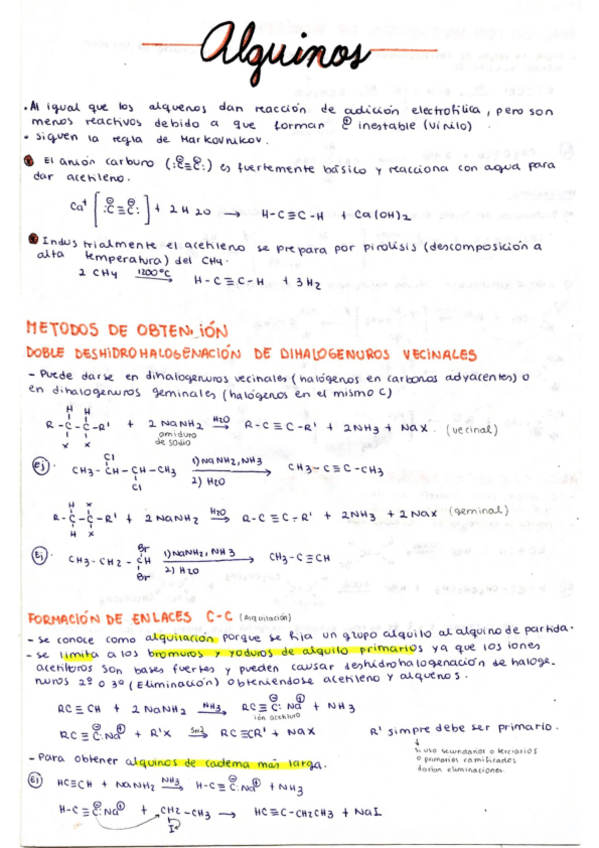 Alquinos
• Al igual que los alquenos dan reacción de adición electrofílica, pero son
menos reactivos debido a que forman ⊕ inestable (vinilo).
• siguen la regla de Markovnikov.
El anión carburo (:C̈⊖≡C̈⊖:) es fuertemente básico y reacciona con agua para
dar acetileno.
Ca⁺ [:C̈⊖≡C̈⊖:] + 2 H2O → H-C≡C-H + Ca(OH)2
Industrialmente el acetileno se prepara por pirólisis (descomposición a
alta temperatura) del CH4.
2 CH4 1200°C → H-C≡C-H + 3H2
METODOS DE OBTENCIÓN
DOBLE DESHIDROHALOGENACIÓN DE DIHALOGENUROS VECINALES
- Puede darse en dihalogenuros vecinales (halógenos en carbonos adyacentes) o
en dihalogenuros geminales (halógenos en el mismo C)
H H
R-C-C-R' + 2 NaNH2 H2O → R-C≡C-R' + 2NH3 + NaX. (vecinal)
x x
amiduro
de sodio
Ej.
Cl
CH3-CH-CH-CH3 1) NaNH2, NH3 2) H2O → CH3-C≡C-CH3
Cl
H x
R-C-C-R' + 2 NaNH2 H2O → R-C≡C-R' + 2NH3 + 2NaX (geminal)
H x
Ej.
Br
CH3-CH2-CH 1) NaNH2, NH3 2) H2O → CH3-C≡CH
Br
FORMACIÓN DE ENLACES C-C (Alquilación)
- se conoce como alquilación porque se fija un grupo alquilo al alquino de partida.
- se limita a los bromuros y yoduros de alquilo primarios ya que los iones
acetiluros son bases fuertes y pueden causar deshidrohalogenación de haloge-
nuros 2º o 3º (Eliminación) obteniéndose acetileno y alquenos.
RC≡CH + 2 NaNH2 NH3 → RC≡C:⊖ Na⊕ + NH3
ión acetiluro
RC≡C:⊖ Na⊕ + R'X SN2 → RC≡CR' + NaX R' simpre debe ser primario.
↓
si uso secundarios o terciarios
o primarios ramificados
darían eliminaciones.
- Para obtener alquinos de cadema más larga.
Ej HC≡CH + NaNH2 NH3 → H-C≡C:⊖ Na⊕ + NH3
H-C≡C:⊖ Na⊕ + CH2-CH3 → HC≡C-CH2CH3 + NaI
I